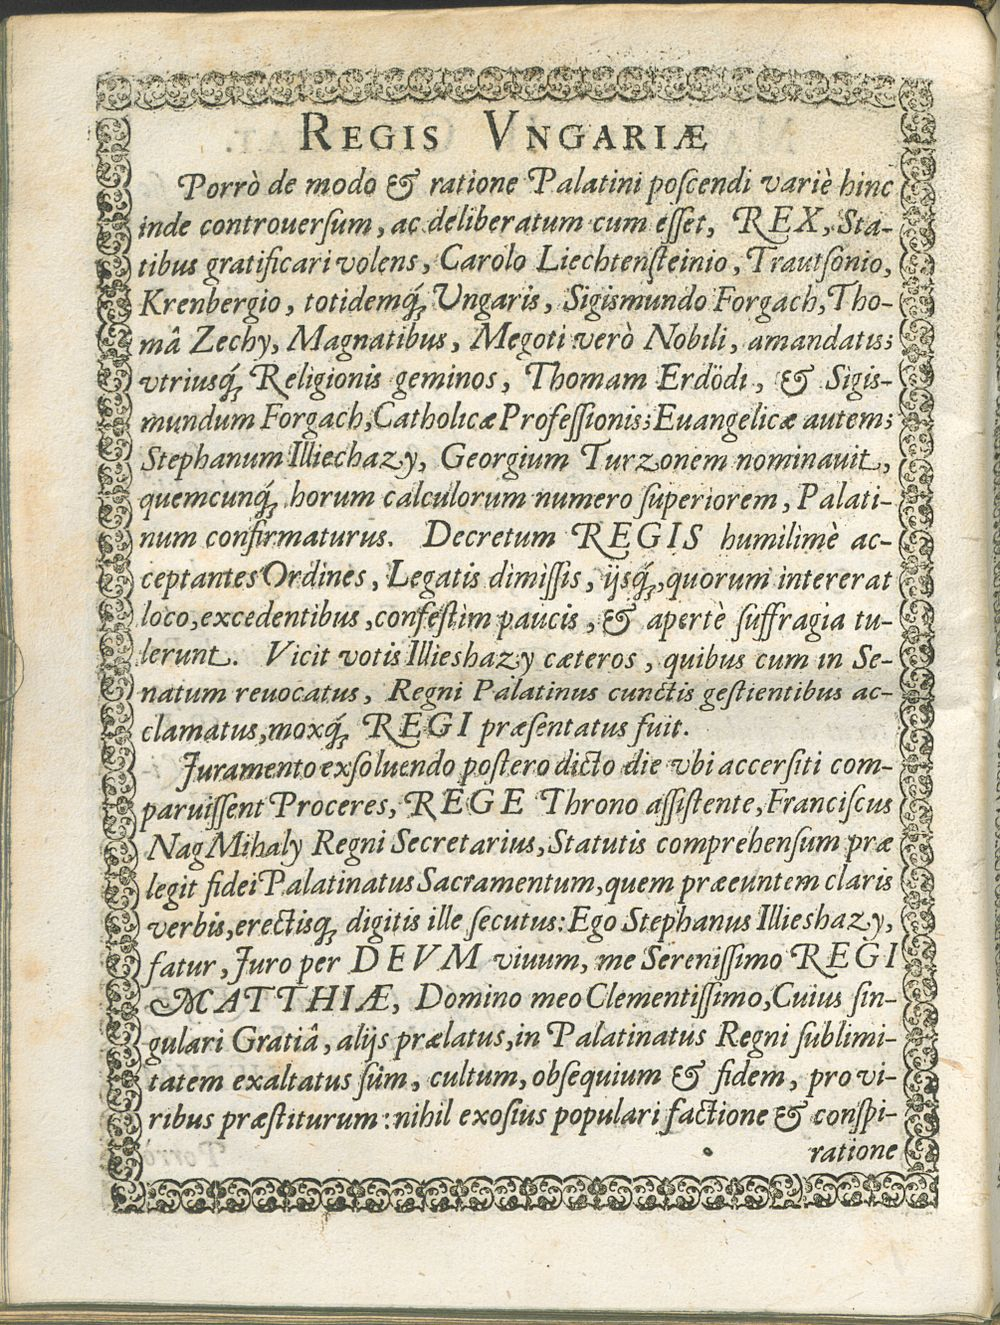 REGIS VNGARIÆ
Porrò de modo & ratione Palatini poscendi variè hinc
inde controuersum, ac deliberatum cum esset, REX, Sta-
tibus gratificari volens, Carolo Liechtensteinio, Trautsonio,
Krenbergio, totidemq́; Ungaris, Sigismundo Forgach, Tho-
mâ Zechy, Magnatibus, Megoti verò Nobili, amandatis;
vtriusq́; Religionis geminos, Thomam Erdödi, & Sigis-
mundum Forgach, Catholicæ Professionis; Euangelicæ autem;
Stephanum Illiechazy, Georgium Turzonem nominauit,
quemcunq́; horum calculorum numero superiorem, Palati-
num confirmaturus. Decretum REGIS humilimè ac-
ceptantes Ordines, Legatis dimissis, ijsq́;, quorum intererat
loco, excedentibus, confestim paucis, & apertè suffragia tu-
lerunt. Vicit votis Illieshazy cæteros, quibus cum in Se-
natum reuocatus, Regni Palatinus cunctis gestientibus ac-
clamatus, moxq́; REGI præsentatus fuit.
Juramento exsoluendo postero dicto die vbi accersiti com-
paruissent Proceres, REGE Throno assistente, Franciscus
Nag Mihaly Regni Secretarius, Statutis comprehensum præ
legit fidei Palatinatus Sacramentum, quem præeuntem claris
verbis, erectisq; digitis ille secutus: Ego Stephanus Illieshazy,
fatur, Juro per DEVM viuum, me Serenissimo REGI
MATTHIÆ, Domino meo Clementissimo, Cuius sin-
gulari Gratiâ, alijs prælatus, in Palatinatus Regni sublimi-
tatem exaltatus sum, cultum, obsequium & fidem, pro vi-
ribus præstiturum: nihil exosius populari factione & conspi-
ratione